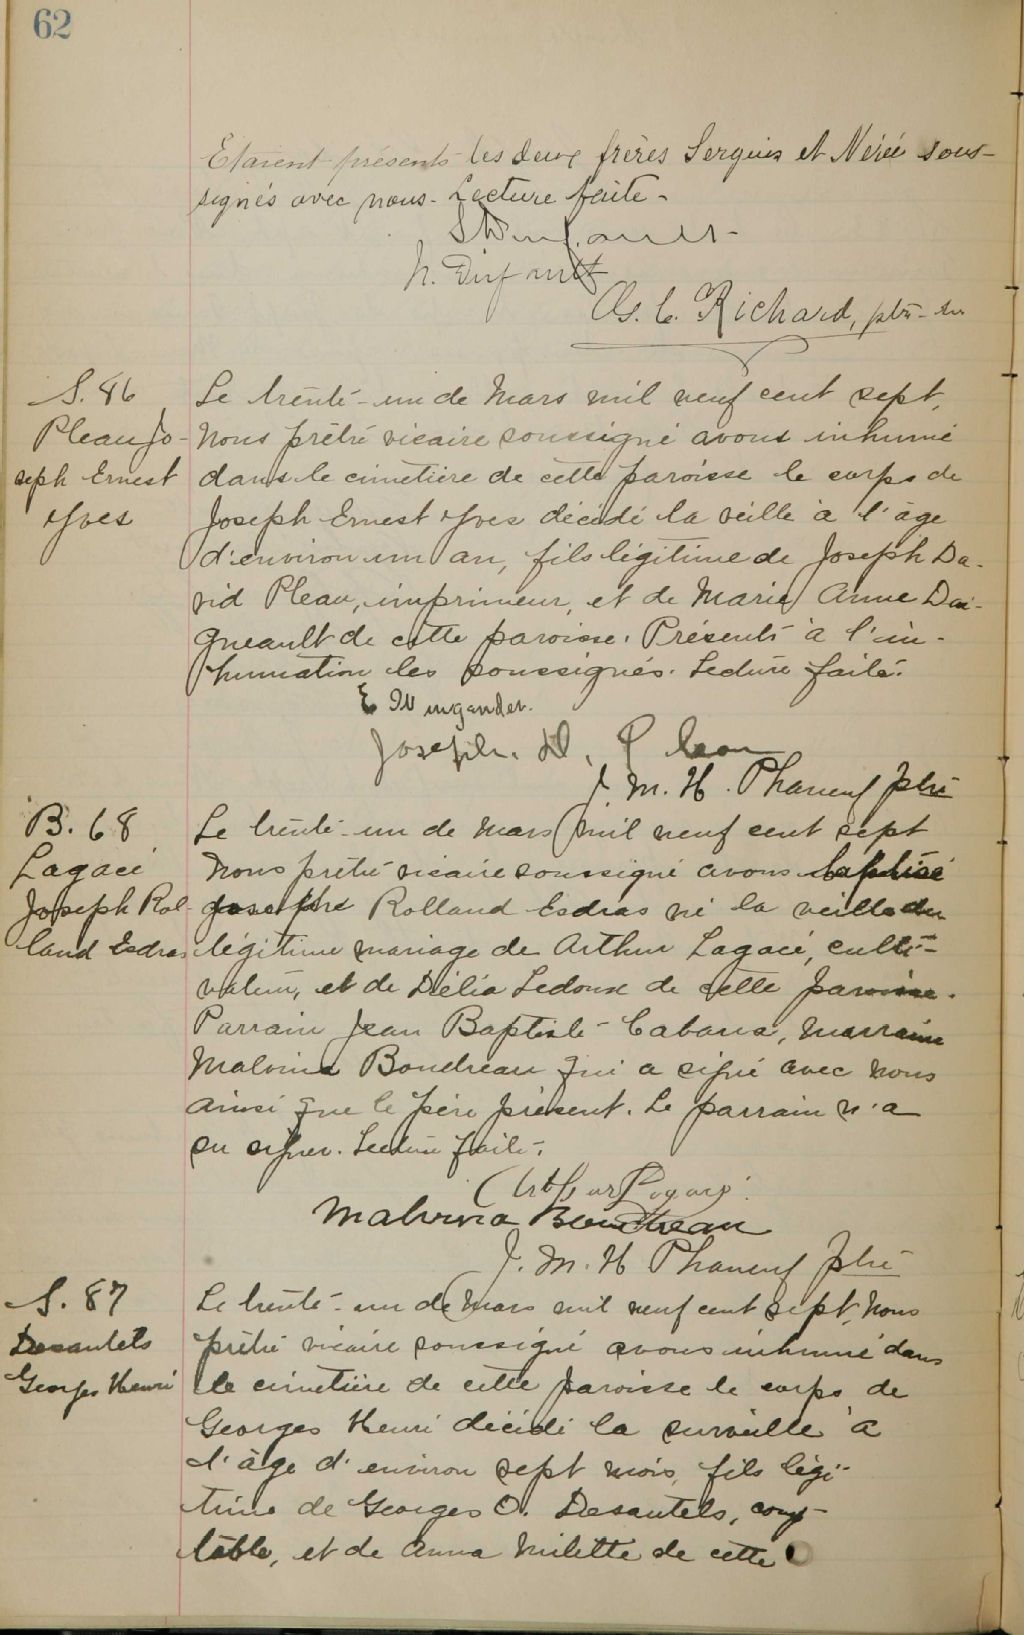 62
Etaient présents les deux frères Sergius et Nérée sous-
signés avec nous. Lecture faite.
S Dufault
N. Dufault
Os. C. Richard, ptre
S. 86
Pleau Jo-
seph Ernest
Yves
Le trente-un de Mars mil neuf cent sept,
Nous prêtre vicaire soussigné avons inhumé
dans le cimetière de cette paroisse le corps de
Joseph Ernest Yves décédé la veille à l'âge
d'environ un an, fils légitime de Joseph Da-
vid Pleau, imprimeur, et de Marie Anne Dai-
gneault de cette paroisse. Présents à l'in-
humation les soussignés. Lecture faite.
E Wingender.
Joseph. D. Pleau
J. M. H. Phaneuf ptre
B. 68
Lagacé
Joseph Rol-
land Esdras
Le trente-un de Mars mil neuf cent sept
Nous prêtre vicaire soussigné avons baptisé
Joseph Rolland Esdras né la veille du
légitime mariage de Arthur Lagacé, culti-
vateur, et de Délia Ledoux de cette paroisse.
Parrain Jean Baptiste Cabana, marraine
Malvina Boudreau qui a signé avec nous
ainsi que le père présent. Le parrain n'a
su signer. Lecture faite.
Arthur Lagacé
Malvina Boudreau
J. M. H Phaneuf ptre
S. 87
Desautels
Georges Henri
Le trente-un de Mars mil neuf cent sept, Nous
prêtre vicaire soussigné avons inhumé dans
le cimetière de cette paroisse le corps de
Georges Henri décédé la surveille à
l'âge d'environ sept mois, fils légi-
time de Georges O. Desautels, comp-
table, et de Anna Milette de cette